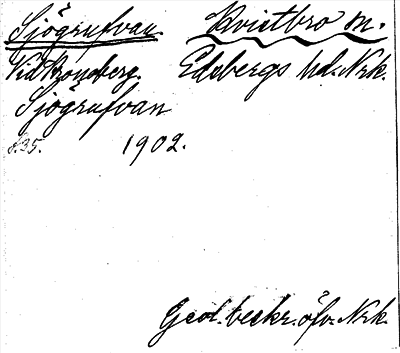 Sjögrufvan. Kvistbro sn.
Vid Bronäberg. Edsbergs hd. Nrk.
Sjögrufvan
s. 35. 1902.
Geol. beskr. öfv. Nrk.